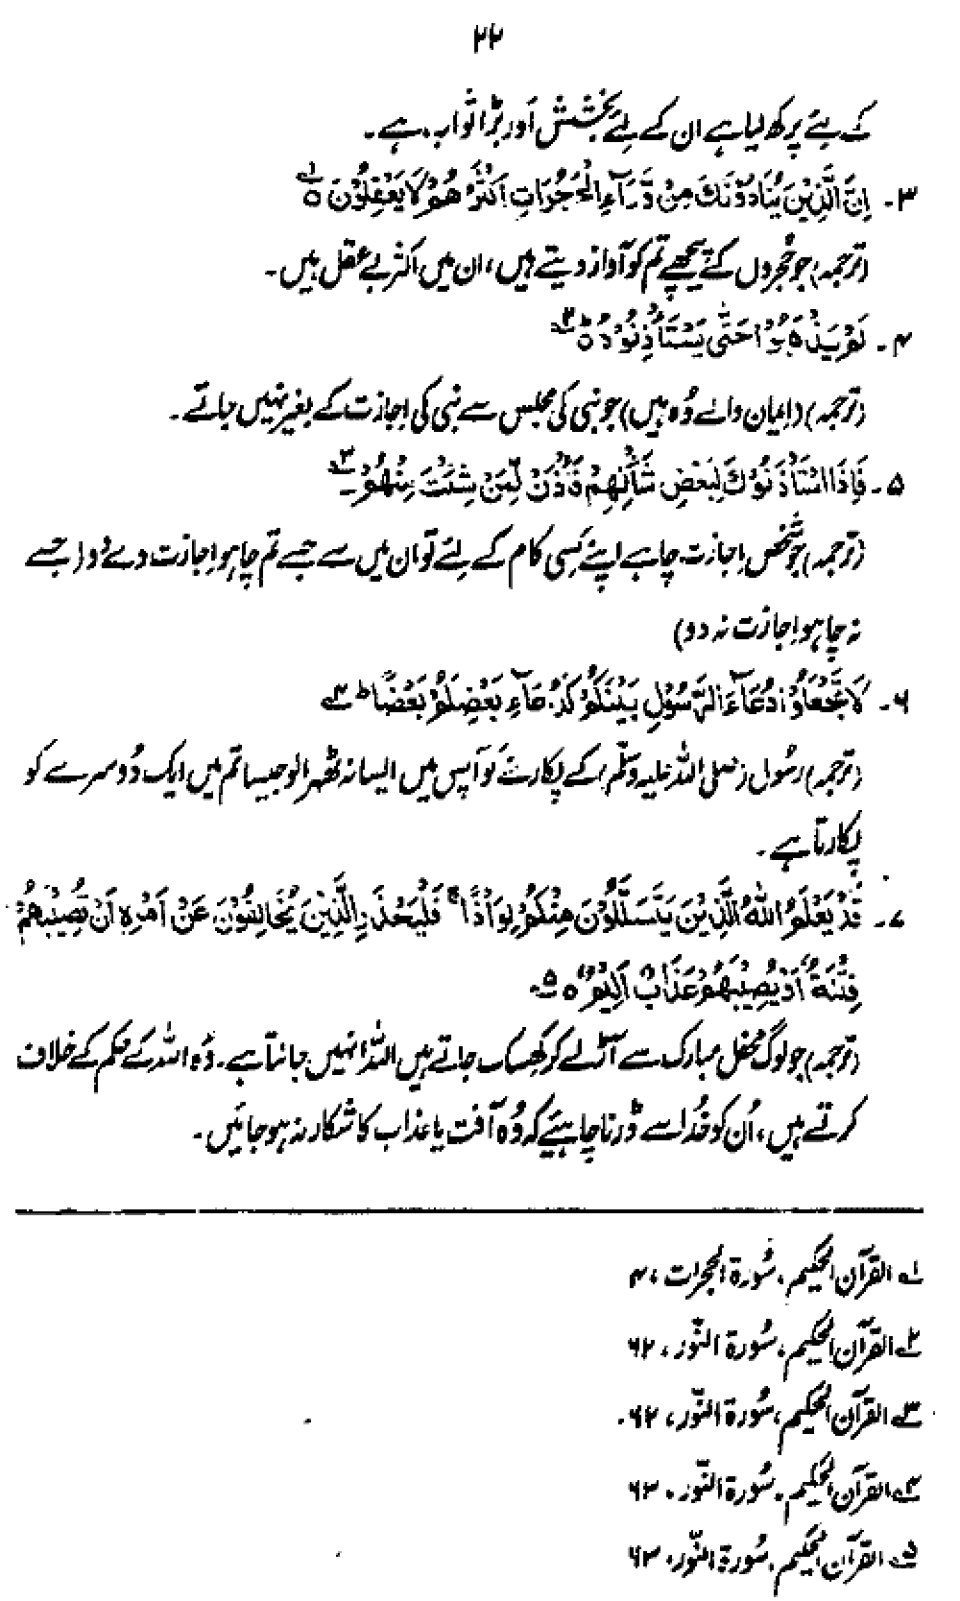 ۲۲
کے لئے پرکھ لیا ہے ان کے لئے بخشش اَور بڑا ثواب ہے۔
۳۔ اِنَّ الَّذِیْنَ یُنَادُوْنَكَ مِنْ وَّرَآءِ الْحُجُرَاتِ اَكْثَرُهُمْ لَا یَعْقِلُوْنَ ۱ه
(ترجمہ) جو حُجروں کے پیچھے تم کو آواز دیتے ہیں، ان میں اکثر بے عقل ہیں۔
۴۔ لَمْ یَذْهَبُوْا حَتّٰى یَسْتَاْذِنُوْهُ ۲ه
(ترجمہ) (ایمان والے وُہ ہیں) جو نبی کی مجلس سے نبی کی اِجازت کے بغیر نہیں جاتے۔
۵۔ فَاِذَا اسْتَاْذَنُوْكَ لِبَعْضِ شَاْنِهِمْ فَاْذَنْ لِّمَنْ شِئْتَ مِنْهُمْ ۳ه
(ترجمہ) جو شخص اِجازت چاہے اپنے کِسی کام کے لئے تو ان میں سے جسے تم چاہو اِجازت دے دو (جسے
نہ چاہو اِجازت نہ دو)
۶۔ لَا تَجْعَلُوْا دُعَآءَ الرَّسُوْلِ بَیْنَكُمْ كَدُعَآءِ بَعْضِكُمْ بَعْضًا ؕ ۴ه
(ترجمہ) رسُول (صلی اللہ علیہ وسلّم) کے پکارنے کو آپس میں ایسا نہ ٹھہرالو جیسا تم میں ایک دُوسرے کو
پکارتا ہے۔
۷۔ قَدْ یَعْلَمُ اللّٰهُ الَّذِیْنَ یَتَسَلَّلُوْنَ مِنْكُمْ لِوَاذًا ۚ فَلْیَحْذَرِ الَّذِیْنَ یُخَالِفُوْنَ عَنْ اَمْرِهٖ اَنْ تُصِیْبَهُمْ
فِتْنَةٌ اَوْ یُصِیْبَهُمْ عَذَابٌ اَلِیْمٌ ۵ه
(ترجمہ) جو لوگ محفل مبارک سے آڑ لے کر کھِسک جاتے ہیں اللہ انہیں جانتا ہے۔ وُہ اللہ کے حکم کے خلاف
کرتے ہیں، اُن کو خُدا سے ڈرنا چاہیئے کہ وُہ آفت یا عذاب کا شکار نہ ہو جائیں۔
۱ه القرآن الحکیم، سُورة الحجرات، ۴
۲ه القرآن الحکیم، سُورة النّور، ۶۲
۳ه القرآن الحکیم، سُورة النّور، ۶۲
۴ه القرآن الحکیم، سُورة النّور، ۶۳
۵ه القرآن الحکیم، سُورة النّور، ۶۳